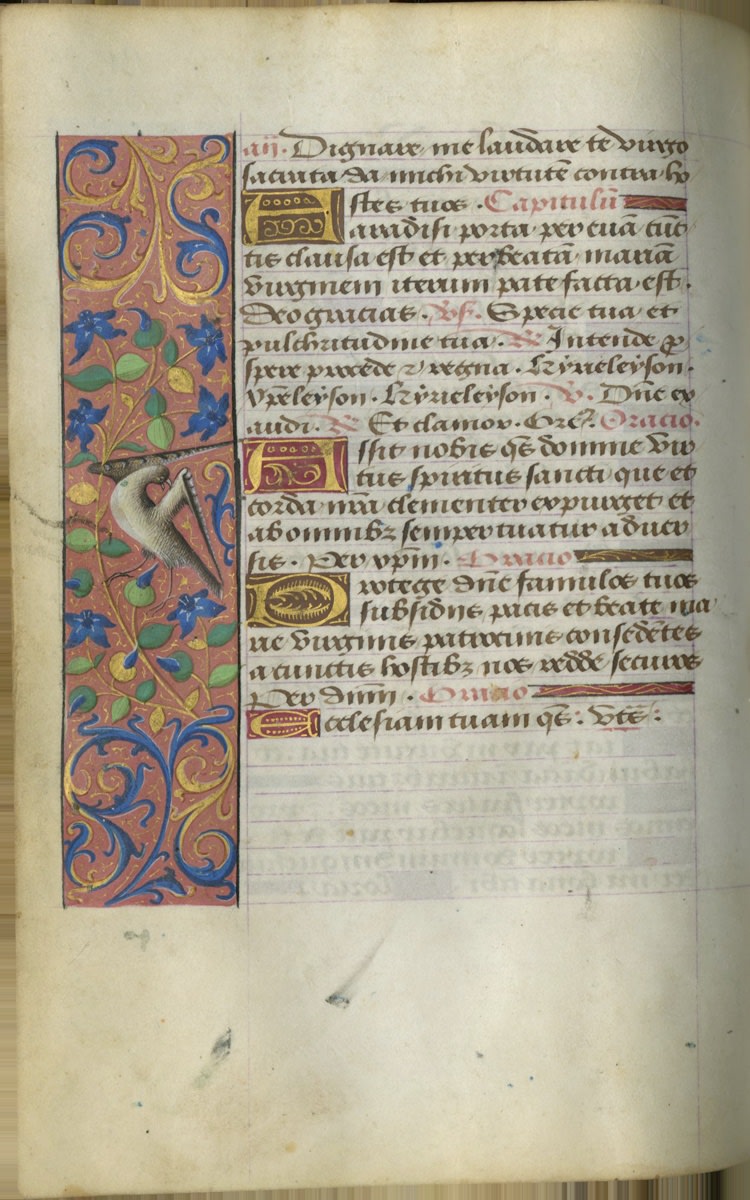 añ. Dignare me laudare te virgo
sacrata da michi virtutē contra ho
stes tuos. Capitulū
Paradisi porta per euā cūc
tis clausa est et per beatā mariā
virginem iterum patefacta est.
Deo gracias. Vs. Specie tua et
pulchritudine tua. R Intende ꝓ
spere procede ⁊ regna. Kyrieleyson.
xp̄eleyson. Kyrieleyson. V. Dn̄e ex
audi. R Et clamor. Ore. Oracio.
Assit nobis qs̄ domine vir
tus spiritus sancti que et
corda nr̄a clementer expurget et
ab omnibꝫ semper tuatur aduer
sis. Per xp̄m. Oracio
Protege dn̄e famulos tuos
subsidiis pacis et beate ma
rie virginis patrociniis confidētes
a cunctis hostibꝫ nos redde securos
Per dn̄m. Oracio
Ecclesiam tuam qs̄. vts̄.